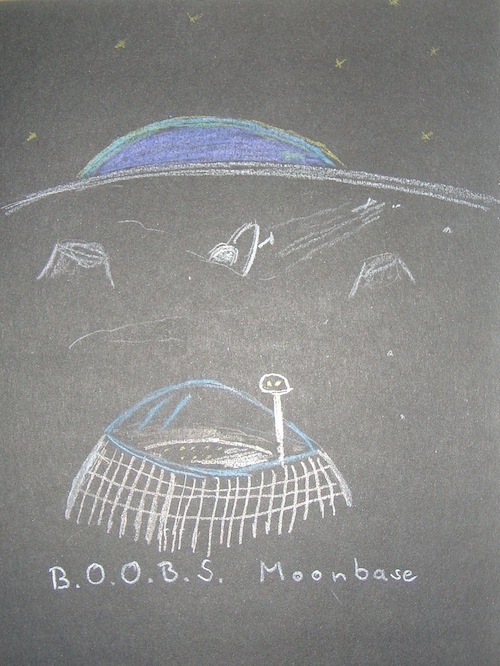 B.O.O.B.S. Moonbase